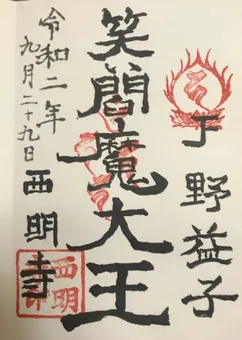 下野益子
笑閻魔大王
令和二年
九月二十九日
西明寺
西明